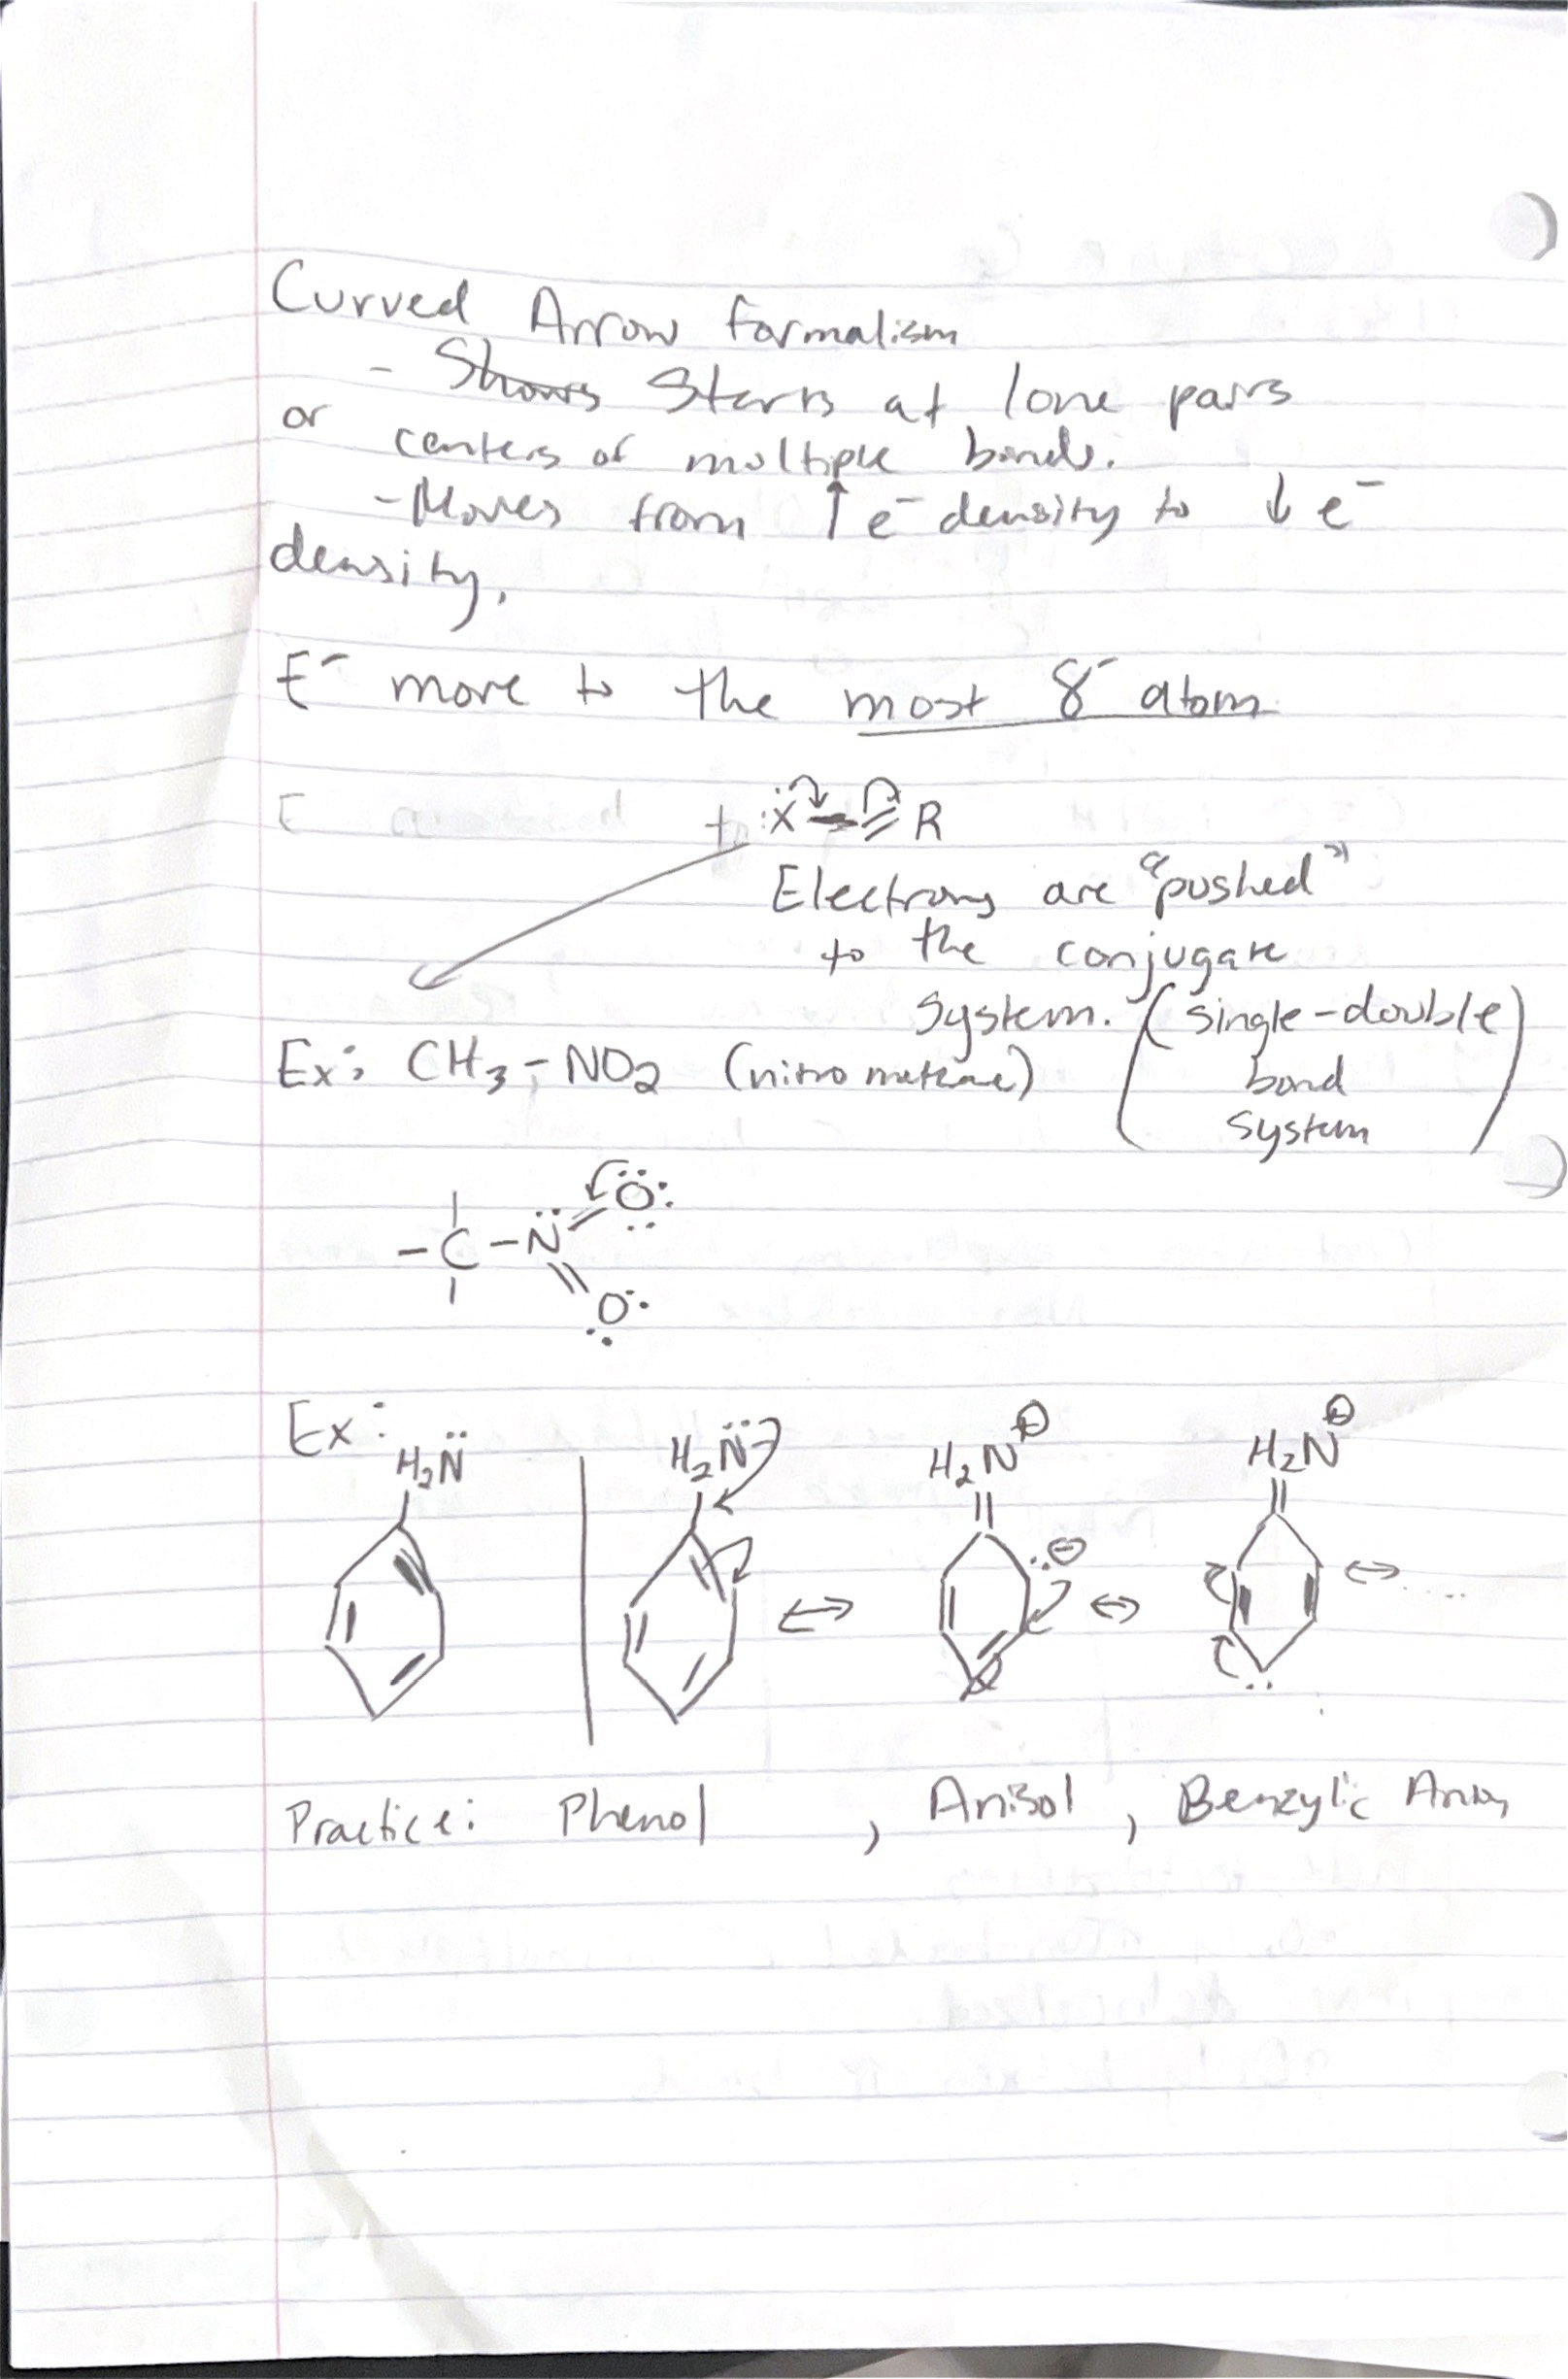 Curved Arrow formalism
- Shows Starts at lone pairs
or centers of multiple bonds.
- Moves from ↑ e⁻ density to ↓ e⁻
density.
E⁻ move to the most δ⁻ atom
E
+ :Ẍ-=R
Electrons are "pushed"
to the conjugate
system. (single-double
bond
system)
Ex: CH₃-NO₂ (nitromethane)
-C-N=O:
O:
Ex:
H₂N̈ H₂N̈ H₂N⊕ H₂N⊕
⊖
↔ ↔ ↔ ....
Practice: Phenol, Anisol, Benzylic Anion